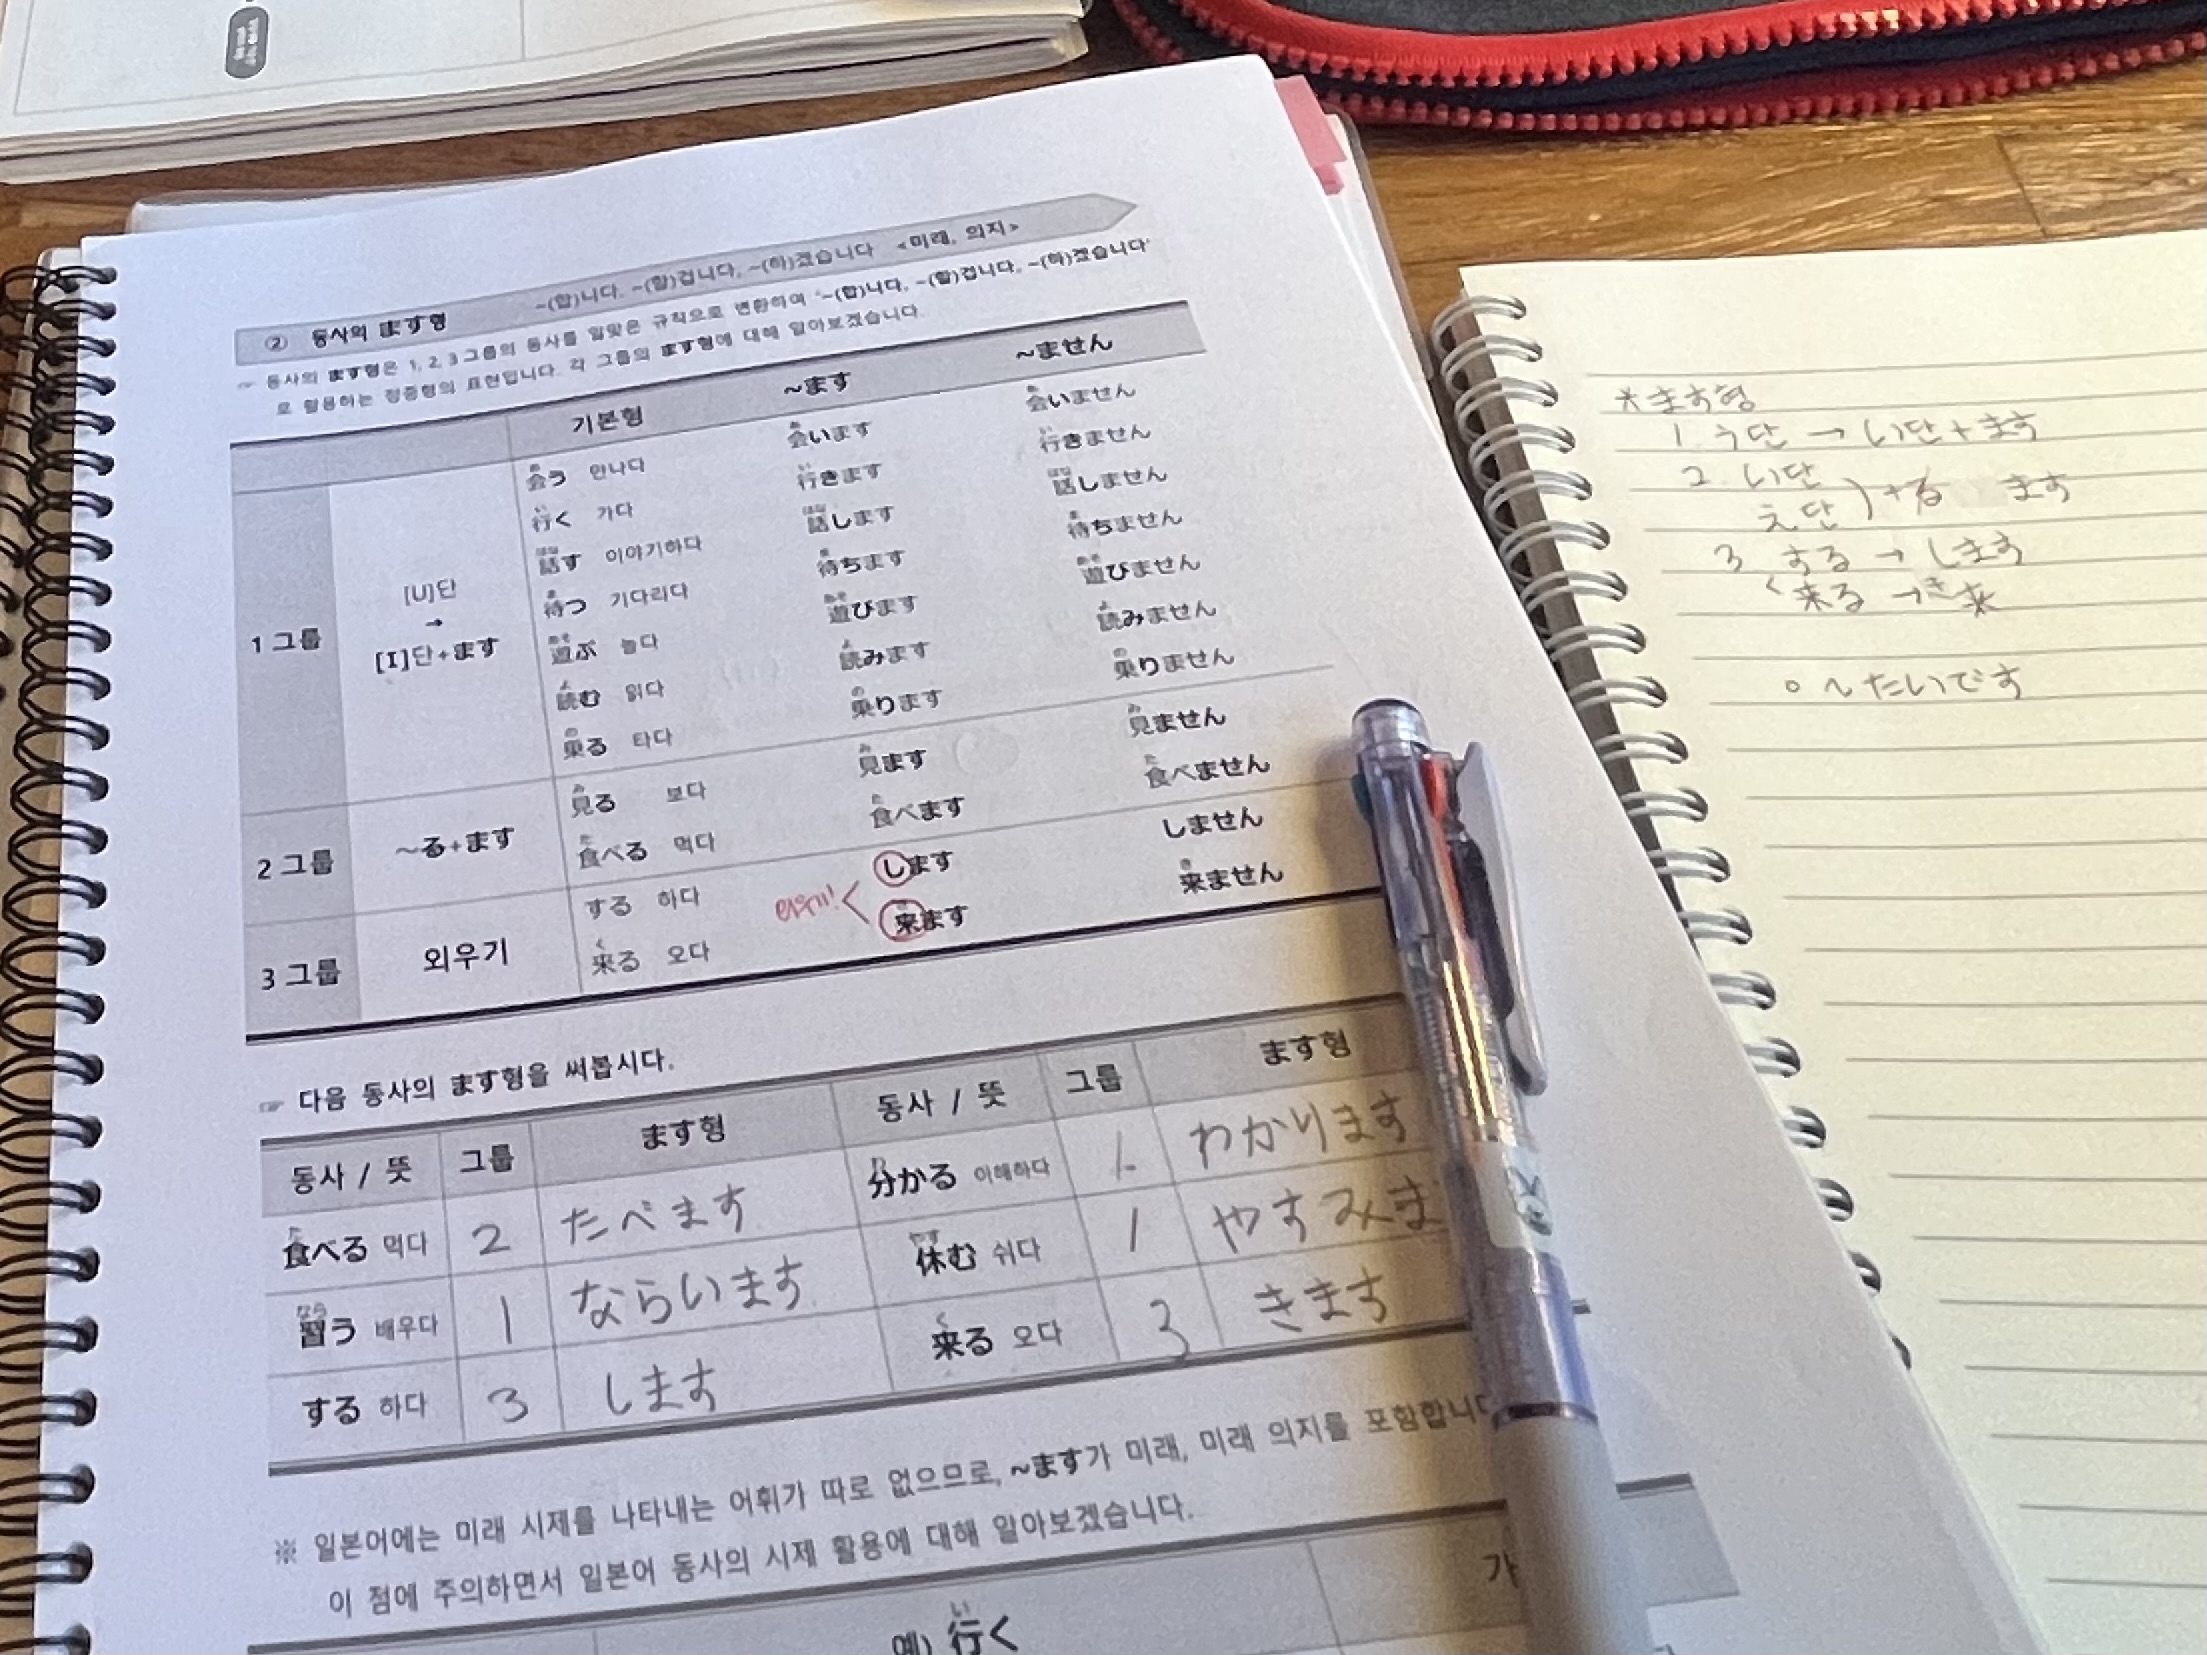 ② 동사의 ます형 ~(합)니다, ~(할)겁니다, ~(하)겠습니다 <미래, 의지>
☞ 동사의 ます형은 1, 2, 3그룹의 동사를 알맞은 규칙으로 변환하여 '~(합)니다, ~(할)겁니다, ~(하)겠습니다'
로 활용하는 정중형의 표현입니다. 각 그룹의 ます형에 대해 알아보겠습니다.
기본형 ~ます ~ません
1 그룹
[U]단
→
[I]단+ます
会う 만나다 会います 会いません
行く 가다 行きます 行きません
話す 이야기하다 話します 話しません
待つ 기다리다 待ちます 待ちません
遊ぶ 놀다 遊びます 遊びません
読む 읽다 読みます 読みません
乗る 타다 乗ります 乗りません
2 그룹
~る+ます
見る 보다 見ます 見ません
食べる 먹다 食べます 食べません
3 그룹
외우기
する 하다 します しません
来る 오다 来ます 来ません
☞ 다음 동사의 ます형을 써봅시다.
동사 / 뜻 그룹 ます형 동사 / 뜻 그룹 ます형
食べる 먹다 2 たべます 分かる 이해하다 1 わかります
習う 배우다 1 ならいます 休む 쉬다 1 やすみま
する 하다 3 します 来る 오다 3 きます
※ 일본어에는 미래 시제를 나타내는 어휘가 따로 없으므로, ~ます가 미래, 미래 의지를 포함합니
이 점에 주의하면서 일본어 동사의 시제 활용에 대해 알아보겠습니다.
예) 行く
*ます형
1. う단 → い단+ます
2. い단
え단 ) +る ます
3 する → します
来る → 来
○ ~たいです